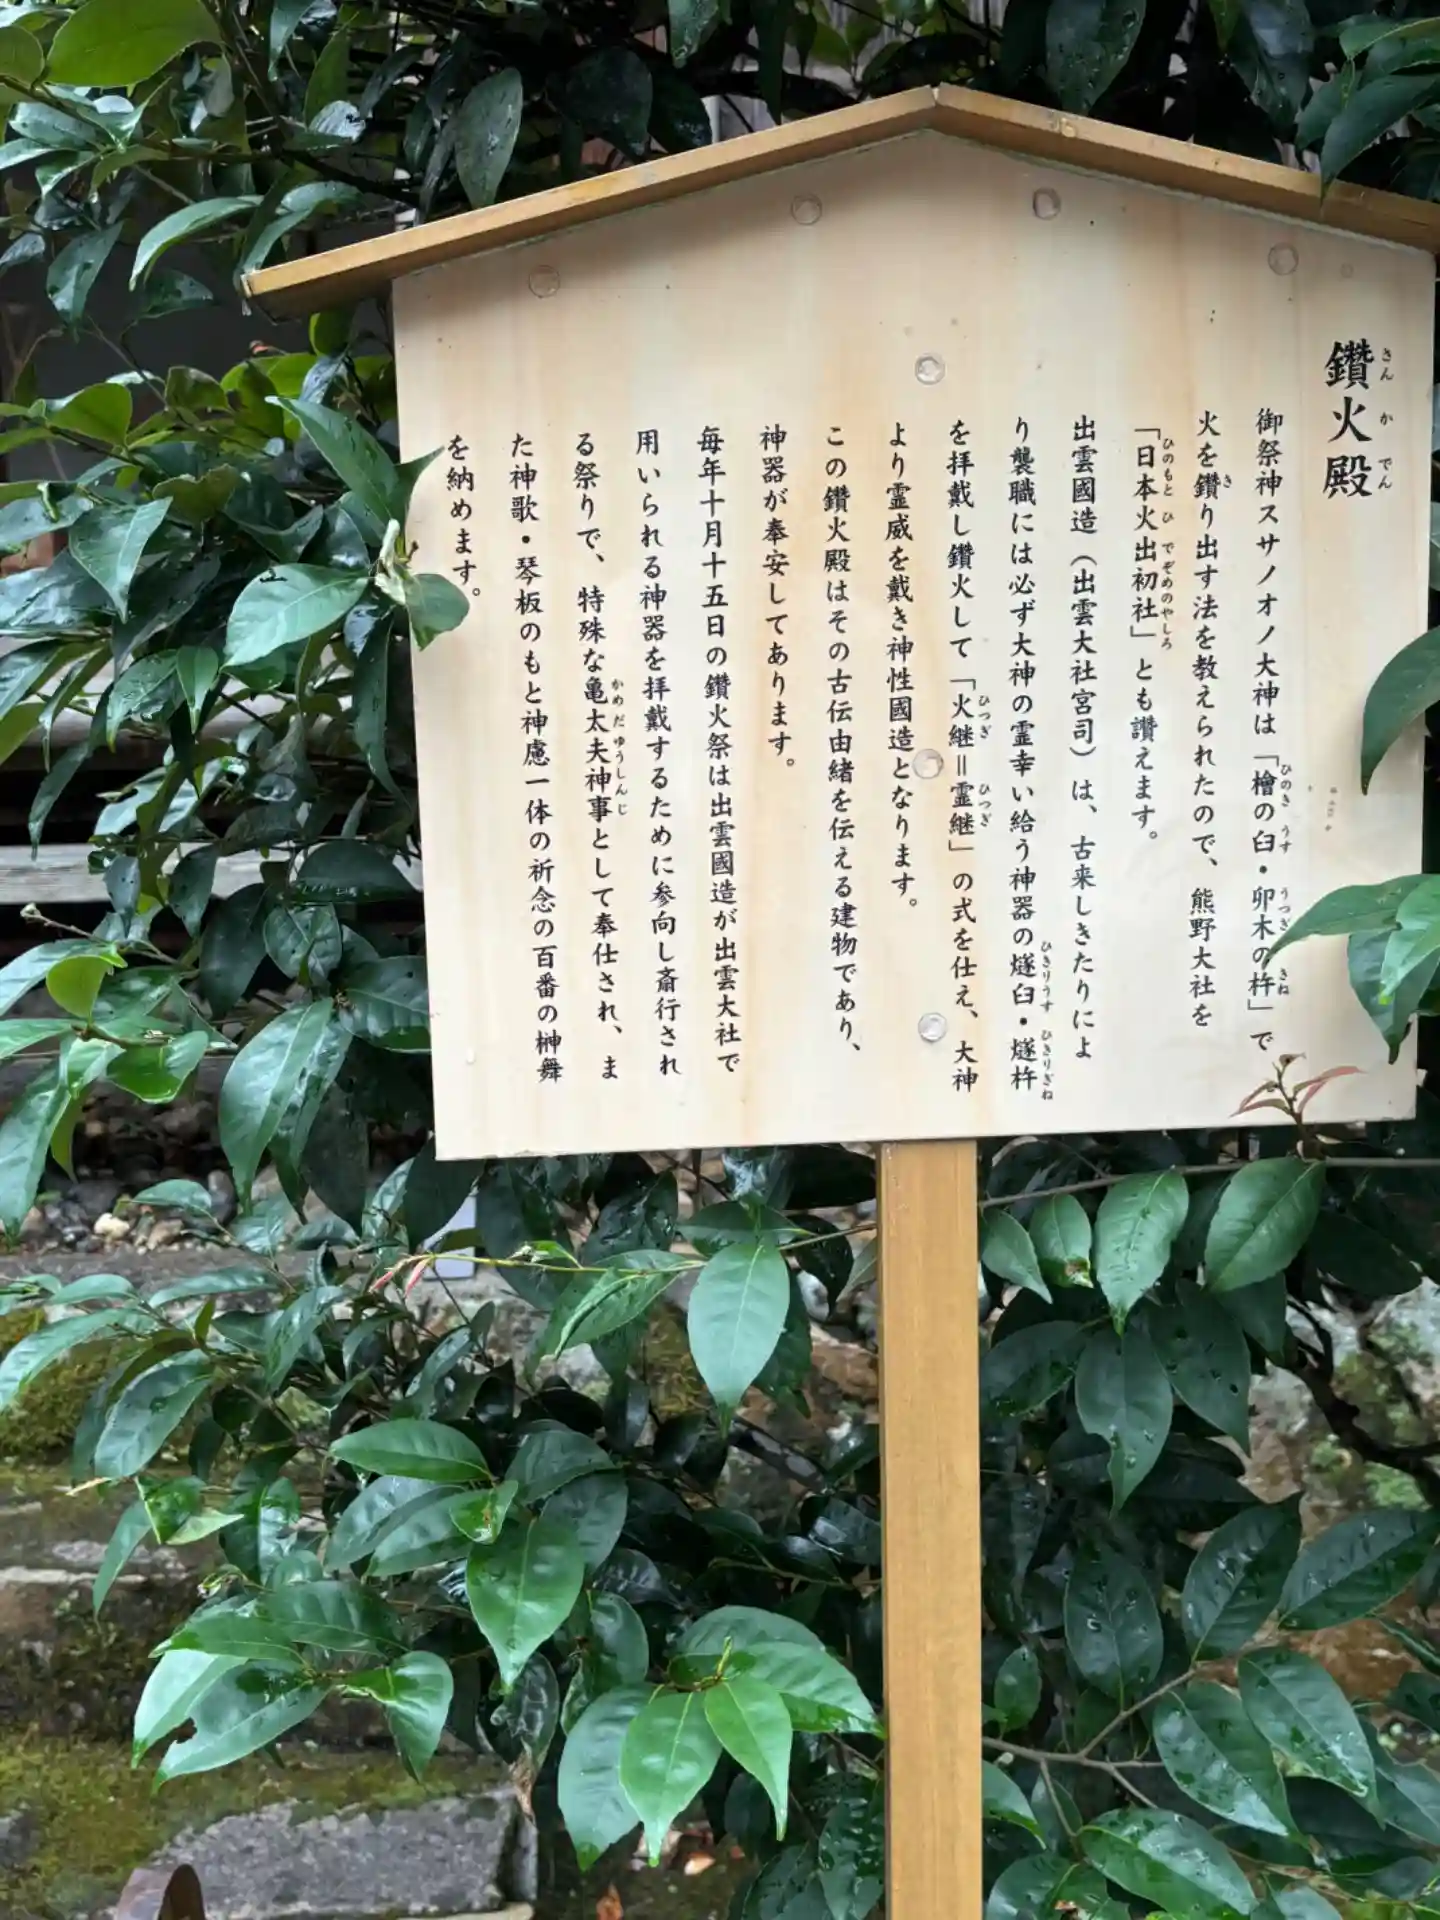 鑽火殿
きんかでん
御祭神スサノオノ大神は「檜の臼・卯木の杵」で
ひのき うす うつぎ きね
火を鑽り出す法を教えられたので、熊野大社を
き
「日本火出初社」とも讃えます。
ひのもと ひ でぞめのやしろ
出雲國造（出雲大社宮司）は、古来しきたりによ
り襲職には必ず大神の霊幸い給う神器の燧臼・燧杵
ひきりうす ひきりぎね
を拝戴し鑽火して「火継＝霊継」の式を仕え、大神
ひつぎ ひつぎ
より霊威を戴き神性國造となります。
この鑽火殿はその古伝由緒を伝える建物であり、
神器が奉安してあります。
毎年十月十五日の鑽火祭は出雲國造が出雲大社で
用いられる神器を拝戴するために参向し斎行され
る祭りで、特殊な亀太夫神事として奉仕され、ま
かめだゆうしんじ
た神歌・琴板のもと神慮一体の祈念の百番の榊舞
を納めます。